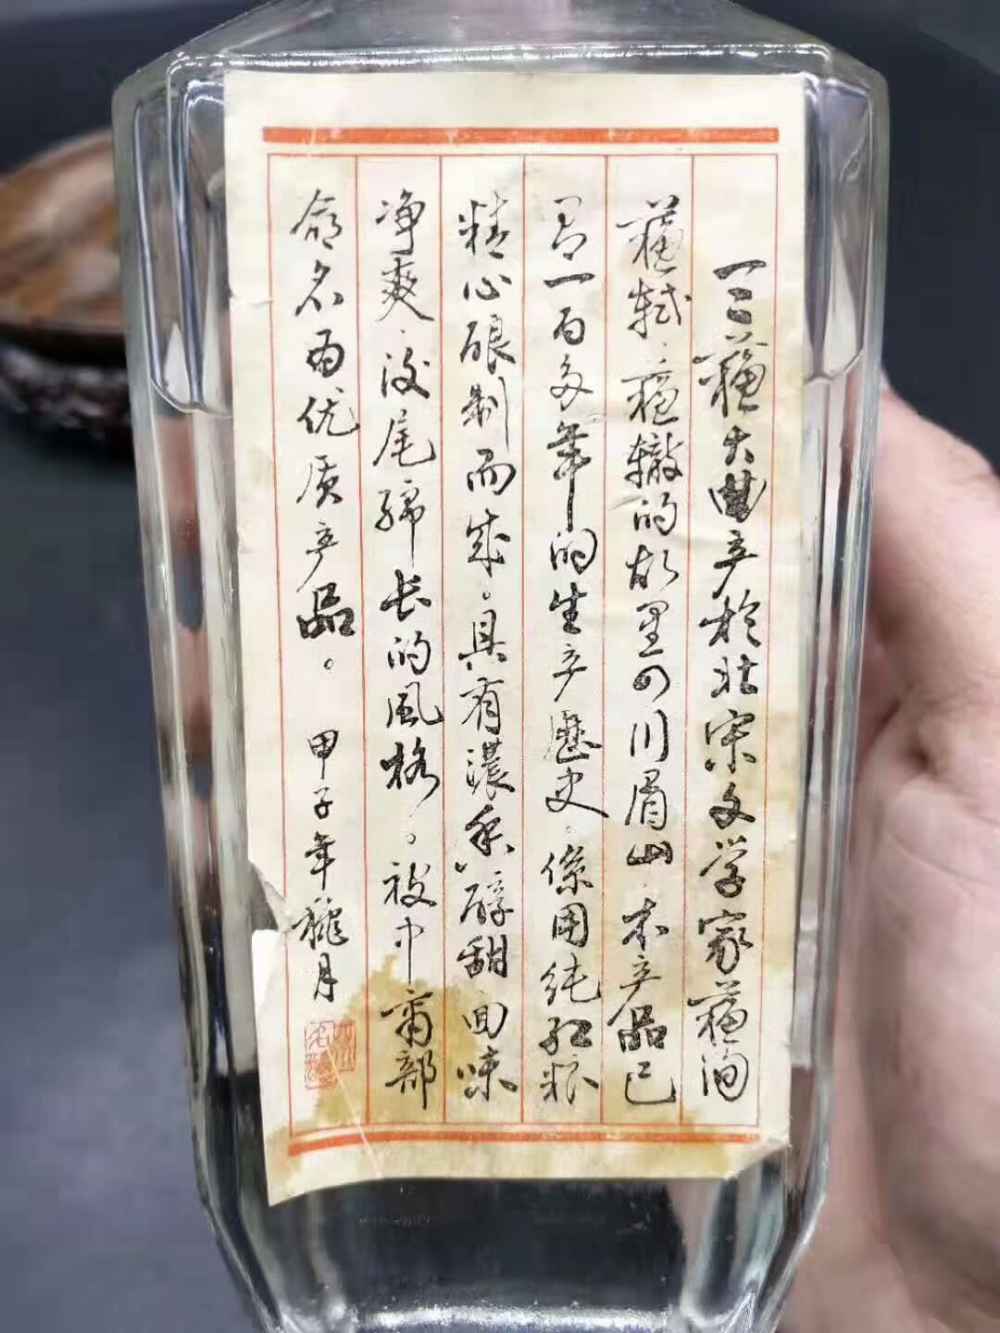 三蘇大曲产於北宋文学家蘇洵
蘇轼、蘇辙的故里四川眉山、本产品已
有一百多年的生产歷史。係用纯红粮
精心酿制而成。具有濃香醇甜、回味
净爽、後尾綿长的風格。被中商部
命名为优质产品。
甲子年 月